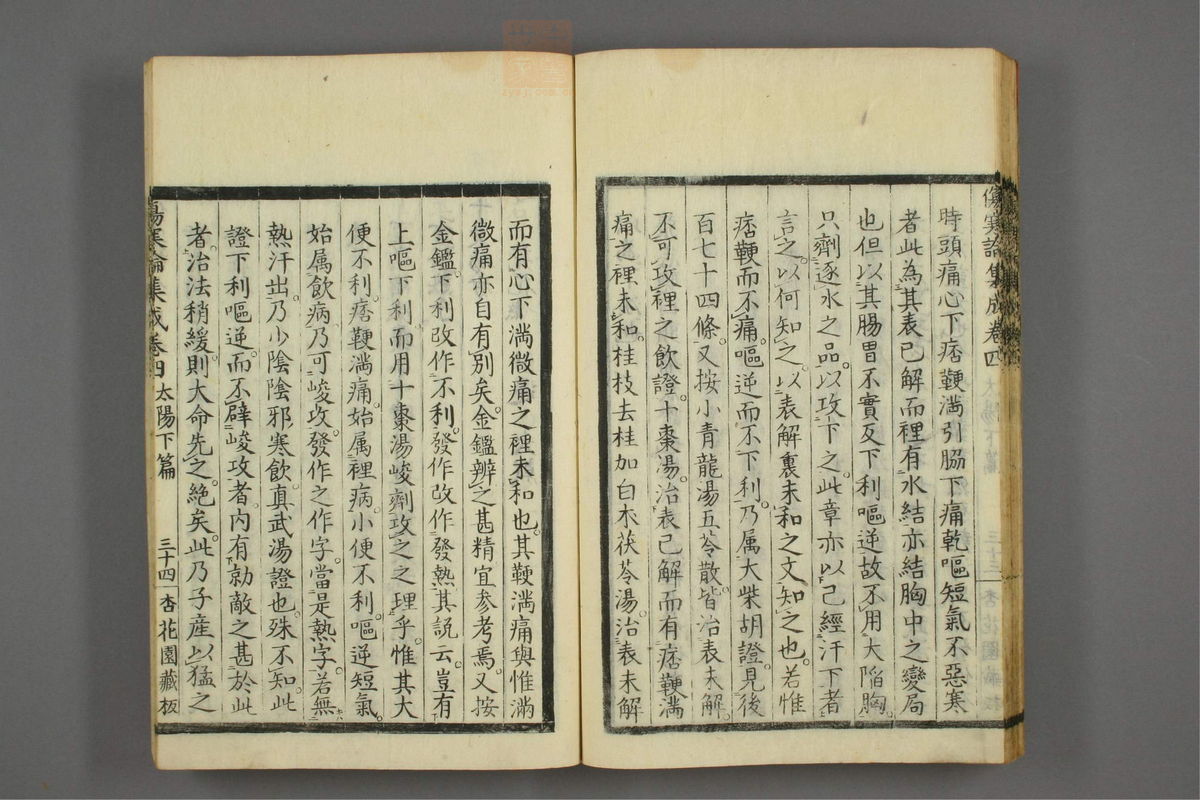 傷寒論集成卷四
時頭痛心下痞鞕滿引脇下痛乾嘔短氣不惡寒
者此為其表已解而裡有水結亦結胸中之變局
也但以其腸胃不實反下利嘔逆故不用大陷胸
只劑逐水之品以攻下之此章亦以已經汗下者
言之以何知之以表解裏未和之文知之也若惟
痞鞕而不痛嘔逆而不下利乃属大柴胡證見後
百七十四條又按小青龍湯五苓散皆治表未解
不可攻裡之飲證十棗湯治表已解而有痞鞕滿
痛之裡未和桂枝去桂加白朮茯苓湯治表未解
而有心下滿微痛之裡未和也其鞕滿痛與惟滿
微痛亦自有別矣金鑑辨之甚精宜參考焉又按
金鑑下利改作不利發作改作發熱其說云豈有
上嘔下利而用十棗湯峻劑攻之之理乎惟其大
便不利痞鞕滿痛始属裡病小便不利嘔逆短氣
始属飲病乃可峻攻發作之作字當是熱字若無
熱汗出乃少陰陰邪寒飲真武湯證也殊不知此
證下利嘔逆而不辟峻攻者內有勍敵之甚於此
者治法稍緩則大命先之絕矣此乃子產以猛之
傷寒論集成卷四 太陽下篇 三十四 杏花園藏板